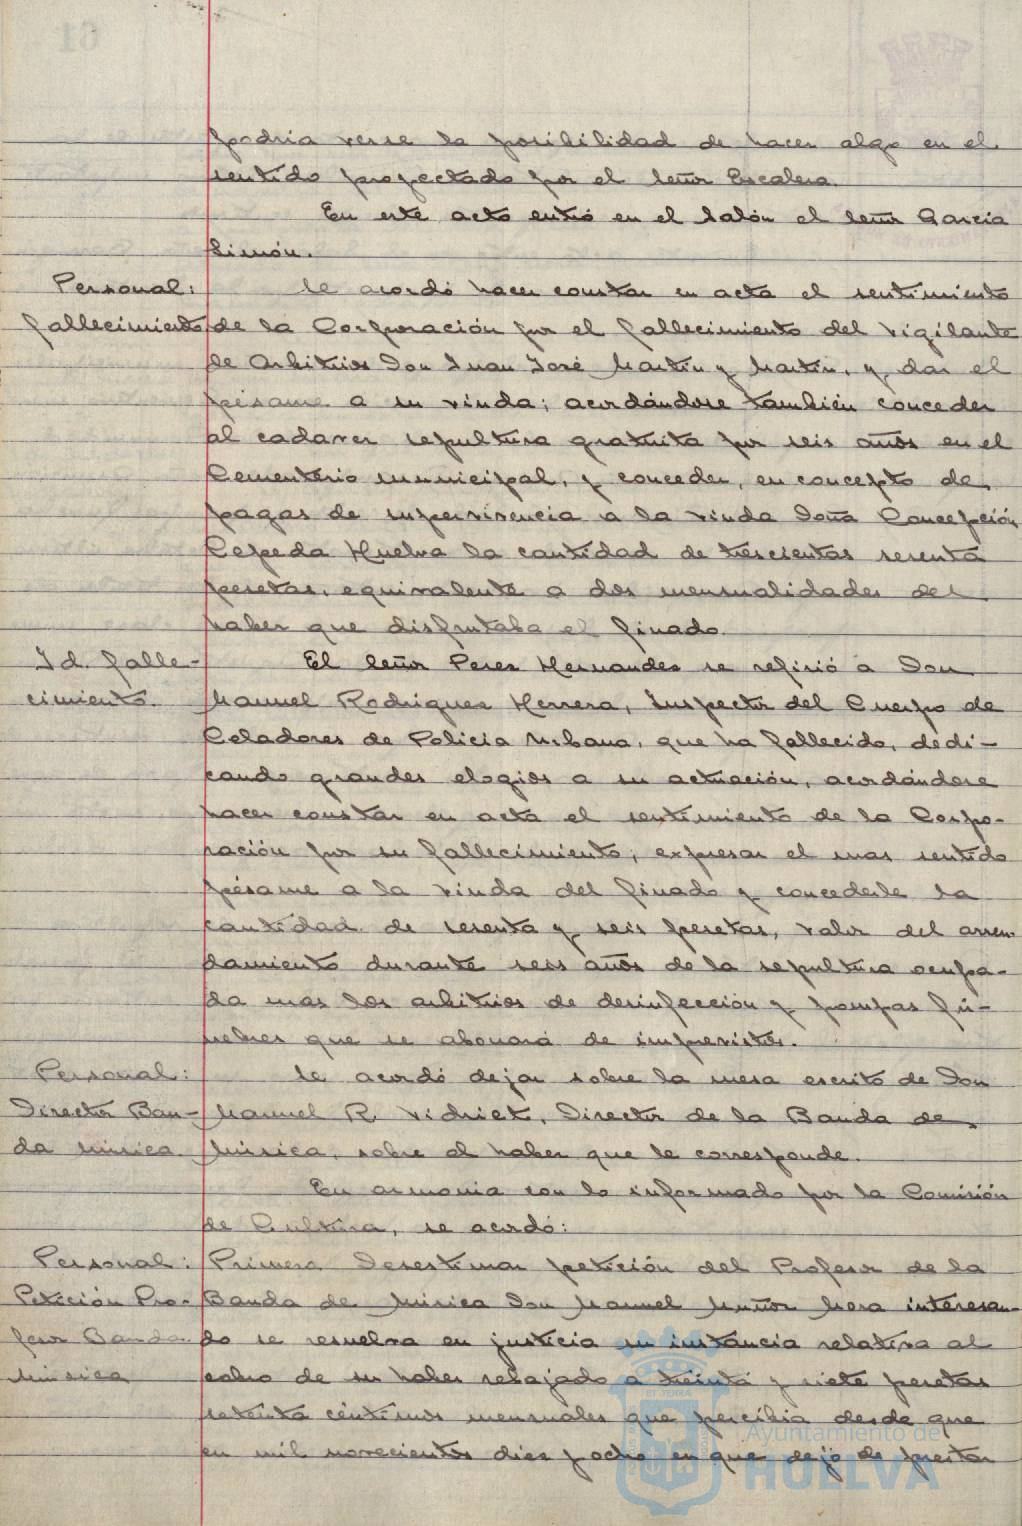 podria verse la posibilidad de hacer algo en el
sentido proyectado por el señor Escalera.
En este acto entró en el salón el señor Garcia
Simón.
Personal: Se acordó hacer constar en acta el sentimiento
fallecimiento de la Corporación por el fallecimiento del vigilante
de Arbitrios Don Juan José Martin y Martin, y dar el
pésame a su viuda; acordándose también conceder
al cadaver sepultura gratuita por seis años en el
Cementerio municipal, y conceder, en concepto de
pagas de supervivencia a la viuda Doña Concepción
Cepeda Huelva la cantidad de trescientas sesenta
pesetas, equivalente a dos mensualidades del
haber que disfrutaba el finado.
Id. falle- El señor Perez Hernandez se refirió a Don
cimiento. Manuel Rodriguez Herrera, Inspector del Cuerpo de
Celadores de Policia Urbana, que ha fallecido, dedi-
cando grandes elogios a su actuación, acordándose
hacer constar en acta el sentimiento de la Corpo-
ración por su fallecimiento; expresar el mas sentido
pésame a la viuda del finado y concederle la
cantidad de sesenta y seis pesetas, valor del arren-
damiento durante seis años de la sepultura ocupa-
da mas los arbitrios de desinfección y pompas fú-
nebres que se abonará de imprevistos.
Personal: Se acordó dejar sobre la mesa escrito de Don
Director Ban- Manuel R. Vidriet, Director de la Banda de
da Música. Música, sobre el haber que le corresponde.
En armonia con lo informado por la Comisión
de Cultura, se acordó:
Personal: Primero Desestimar petición del Profesor de la
Petición Pro- Banda de Música Don Manuel Muñoz Mora interesan-
fesor Banda do se resuelva en justicia su instancia relativa al
Música cobro de su haber rebajado a treinta y siete pesetas
setenta céntimos mensuales que percibia desde que
en mil novecientos diez y ocho en que dejó de prestar
Ayuntamiento de
HUELVA